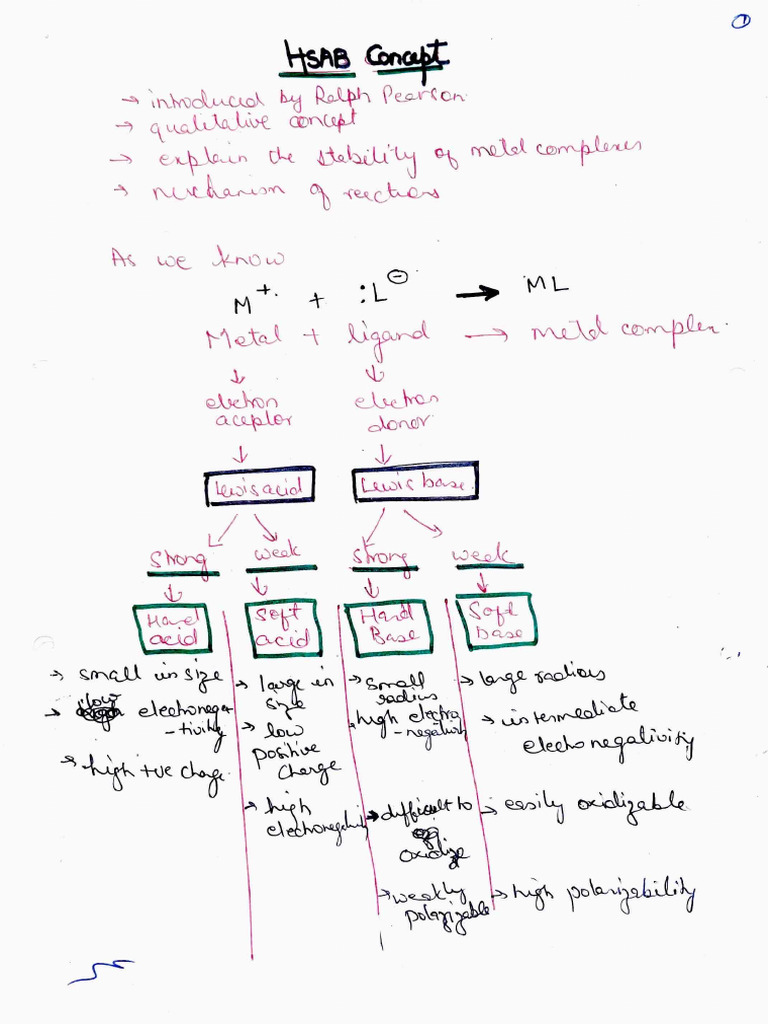 1
HSAB Concept
→ introduced by Ralph Pearson.
→ qualitative concept
→ explain the stability of metal complexes
→ mechanism of reactions
As we know
M⁺ + :L⊖ → ML
Metal + ligand → metal complex.
↓ ↓
electron electron
aceptor donor.
↓ ↓
Lewis acid Lewis base
strong week strong week
↓ ↓ ↓ ↓
Hard acid
Soft acid
Hard Base
Soft base
→ small in size
→ low electronega
-tivity
→ high +ve charge.
→ large in
size
→ low
positive
charge
→ high
electronegativity
→ small
radius
→ high electro
-negativity
→ difficult to
oxidize
→ weekly
polarizable
→ large radius
→ intermediate
electronegativity
→ easily oxidizable
→ high polarizability